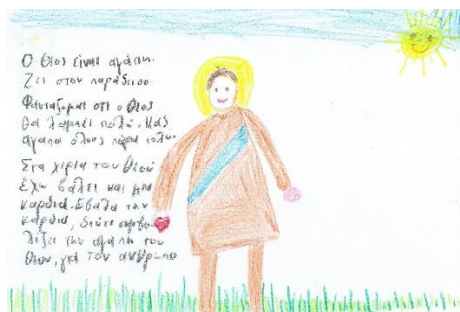 Ο Θεος είναι αγάπη.
Ζει στον παράδεισο.
Φαντάζομαι οτι ο Θεος
θα λάμπει πολύ. Μας
αγαπα όλους πάρα πολυ.
Στα χέρια του Θεού
Εχω βάλει και μια
καρδια. Εβαλα την
καρδια, διότι συμβο
λίζει την αγάπη του
Θεου, για τον άνθρωπο